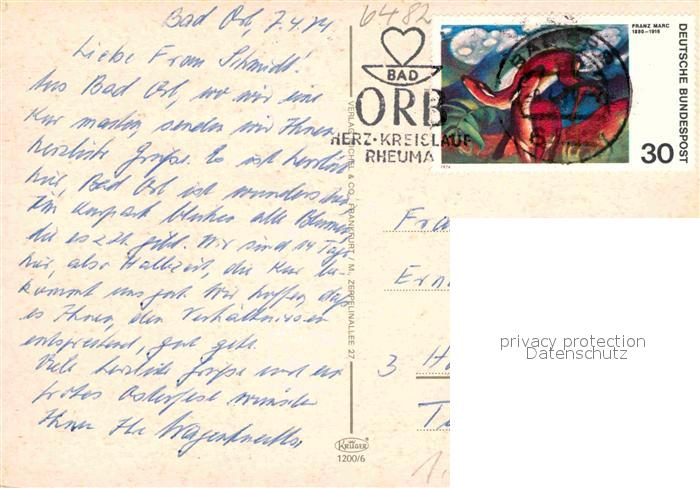 Bad Orb, 7.4.74
6482
Liebe Frau Schmidt!
Aus Bad Orb, wo wir eine
Kur machen, senden wir Ihnen
herzliche Grüße. Es ist herrlich
hier, Bad Orb ist wunderschön.
Im Kurpark blühen alle Blumen,
die es z.Zt. gibt. Wir sind 14 Tage
hier, also Halbzeit, die Kur be-
kommt uns gut. Wir hoffen, daß
es Ihnen, den Verhältnissen
entsprechend, gut geht.
Viele herzliche Grüße und ein
frohes Osterfest wünschen
Ihnen Ihre
BAD
ORB
HERZ·KREISLAUF
RHEUMA
FRANZ MARC
1880-1916
DEUTSCHE BUNDESPOST
30
1974
& CO., FRANKFURT / M., ZEPPELINALLEE 27
KRÜGER
1200/6
Fra
Ern
3 Ha
T
privacy protection
Datenschutz